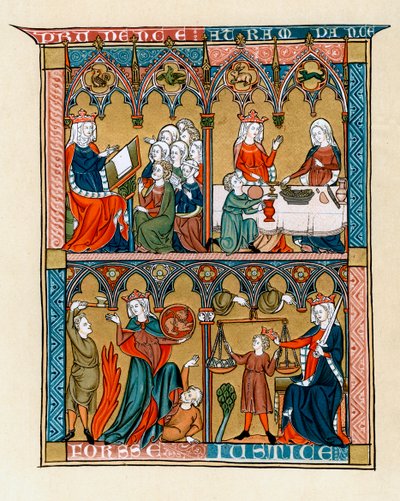 PRUDENCE ATRAMPANCE
FORSSE IUSTICE